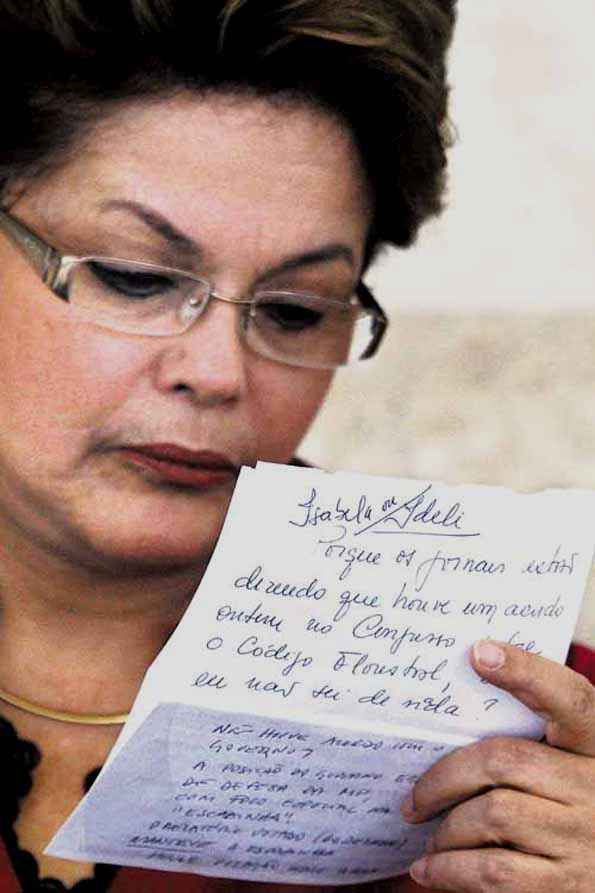 Isabela ou Ideli
Porque os jornais estão
dizendo que houve um acordo
ontem no Congresso sobre
o Código Florestal,
eu não sei de nada?
NÃO HOUVE ACORDO COM O
GOVERNO
A POSIÇÃO DO GOVERNO
DE DEFESA DA MP
COM FOCO ESPECIAL NA
"ESCADINHA"
MANTEVE A ESCADINHA